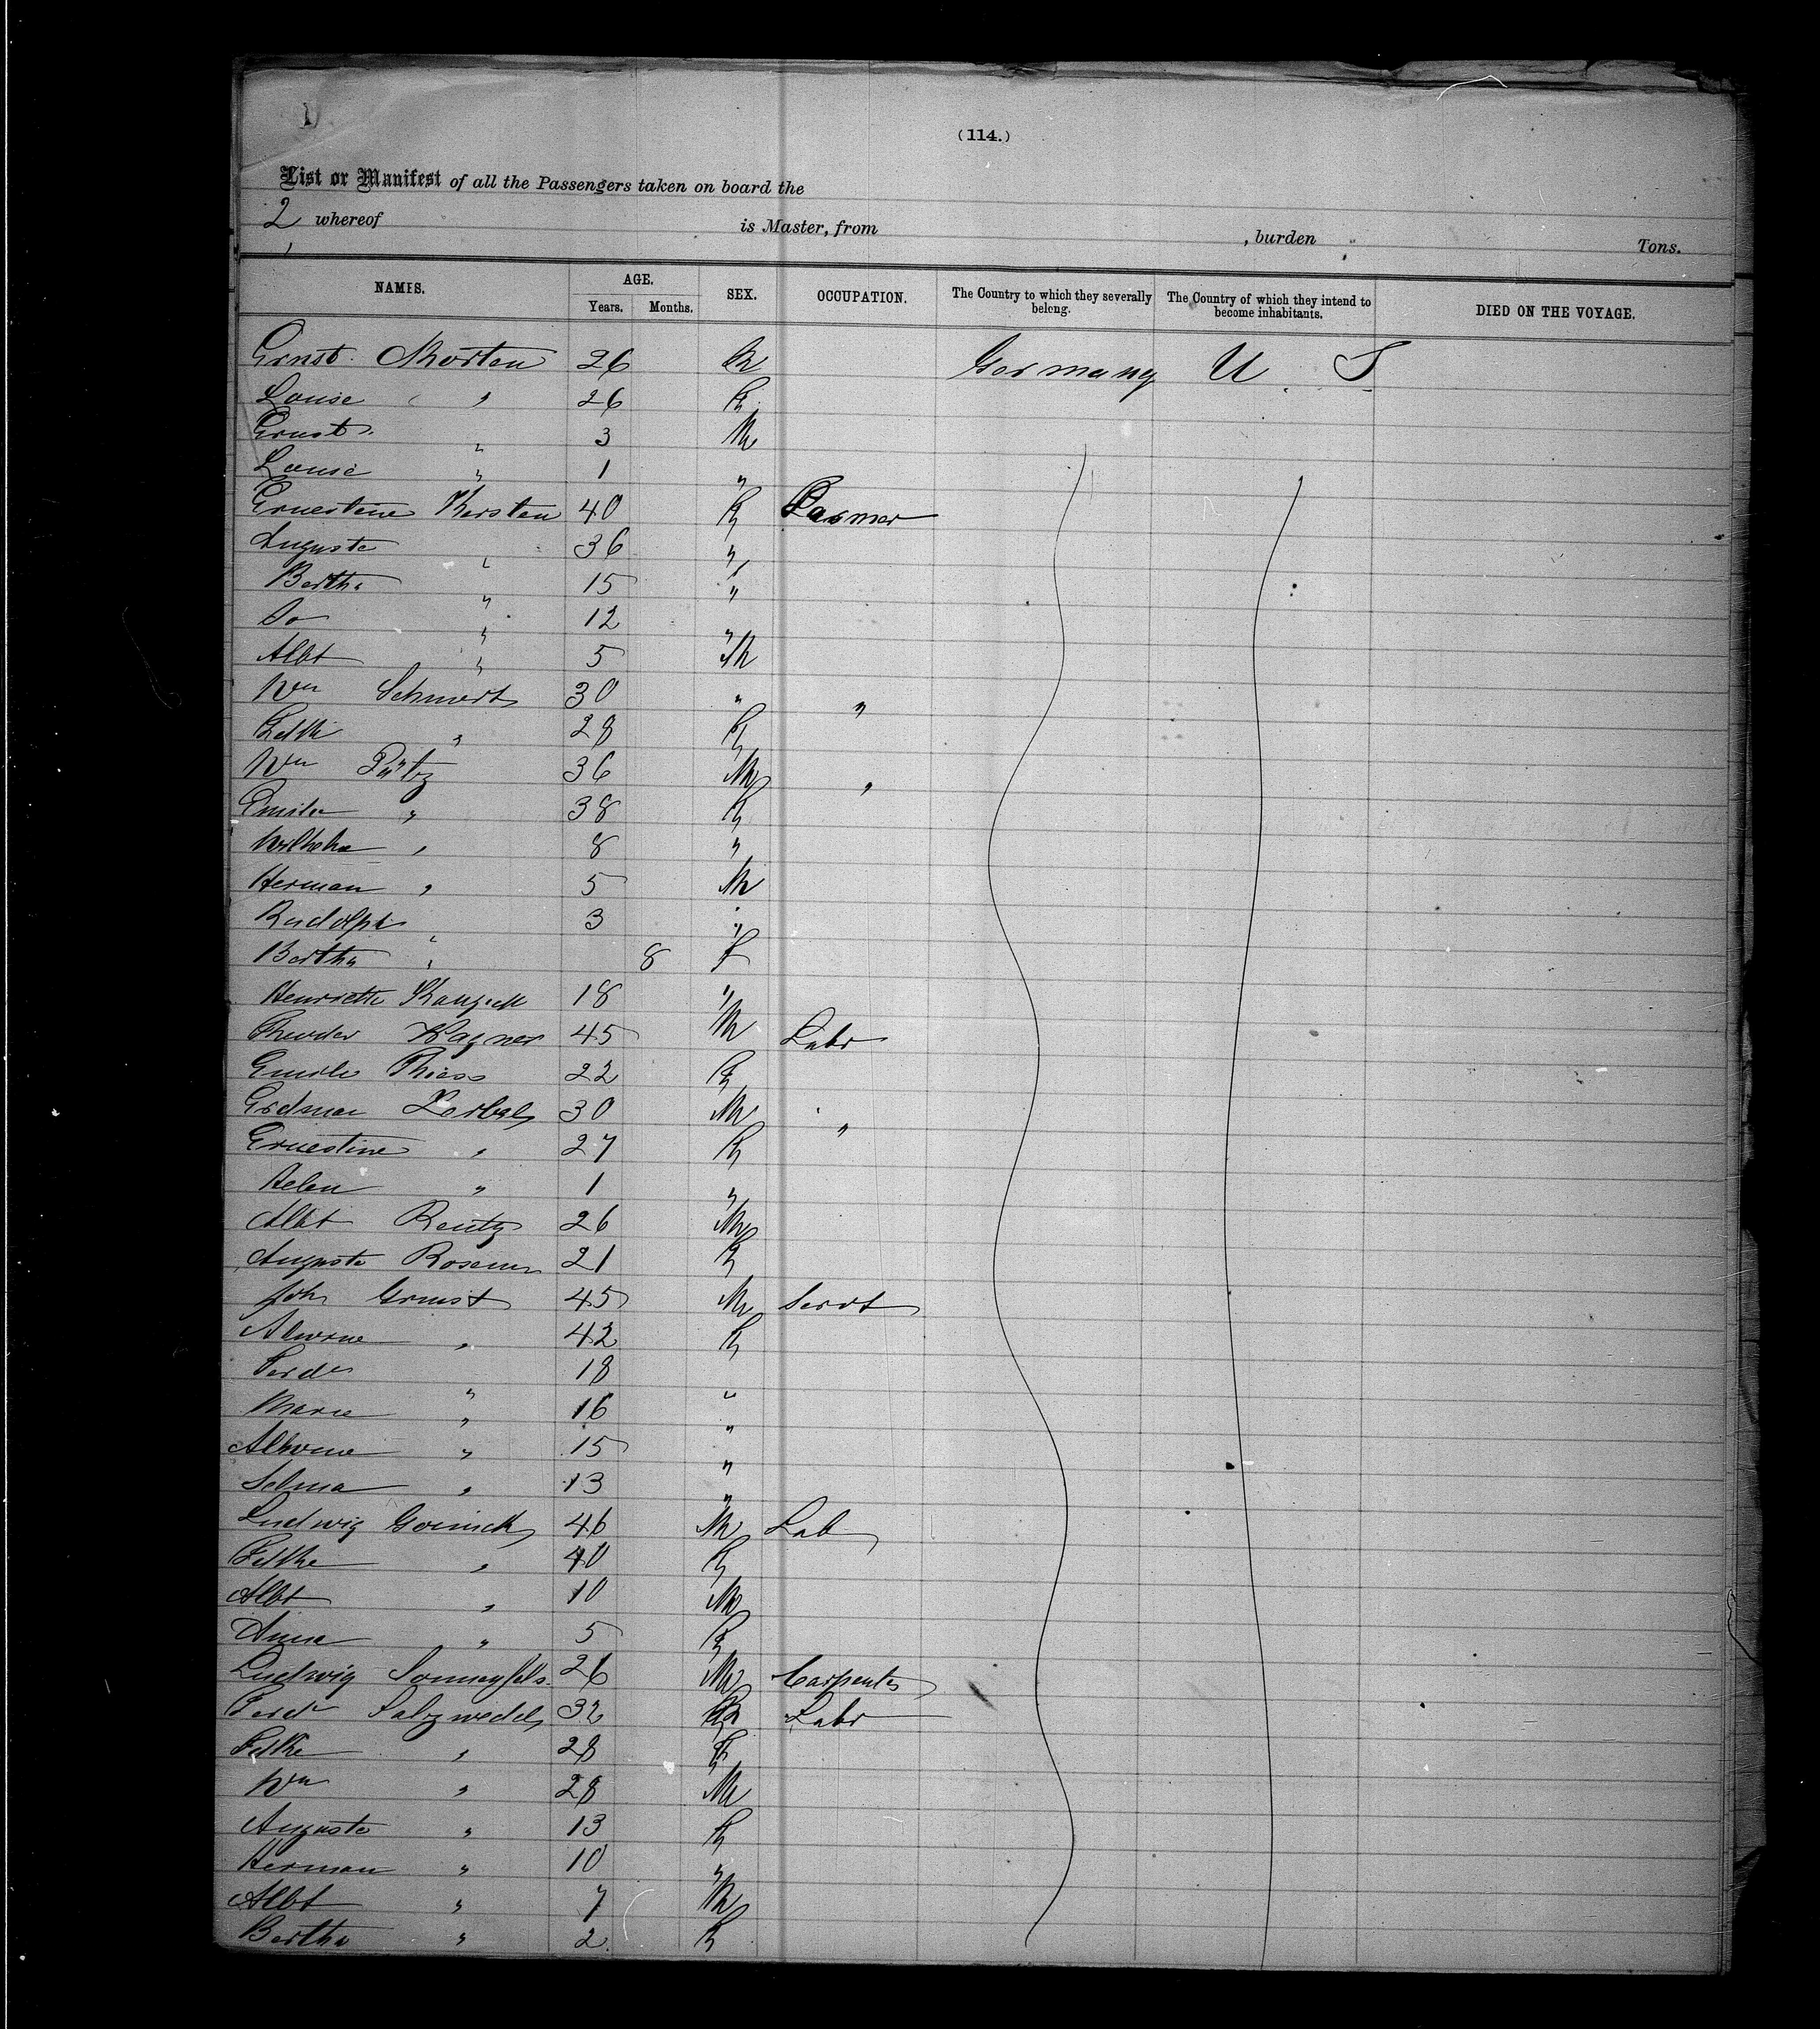 (114.)
List or Manifest of all the Passengers taken on board the
2 whereof is Master, from , burden Tons.
NAMES. AGE. Years. Months. SEX. OCCUPATION. The Country to which they severally belong. The Country of which they intend to become inhabitants. DIED ON THE VOYAGE.
Ernst 26 M Germany U. S
Louise " 26 F
Ernst " 3 M
Louise " 1 "
Ernestine Kersten 40 F Farmer
Auguste " 36 "
Bertha " 15 "
Do " 12 "
Albt " 5 M
Wm 30 " "
" 28 F
Wm 36 M "
" 38 F
Wilhelm " 8 "
Herman " 5 M
Rudolph " 3 "
Bertha " 8 F
Henriette 18 "
Theodor Wagner 45 M Labr
Emile Thiess 22 F
30 M "
Ernestine " 27 F
Helen " 1 "
Albt Rentz 26 M
Auguste 21 F
Joh Ernst 45 M Servt
" 42 F
Ferd " 18 "
Marie " 16 "
" 15 "
Selma " 13 "
Ludwig 46 M Lab
" 40 F
Albt " 10 M
Anna " 5 F
Ludwig 26 M Carpenter
Ferd Salzwedel 32 M Labr
" 28 F
Wm " 28 M
Auguste " 13 F
Herman " 10 "
Albt " 7 M
Bertha " 2 F